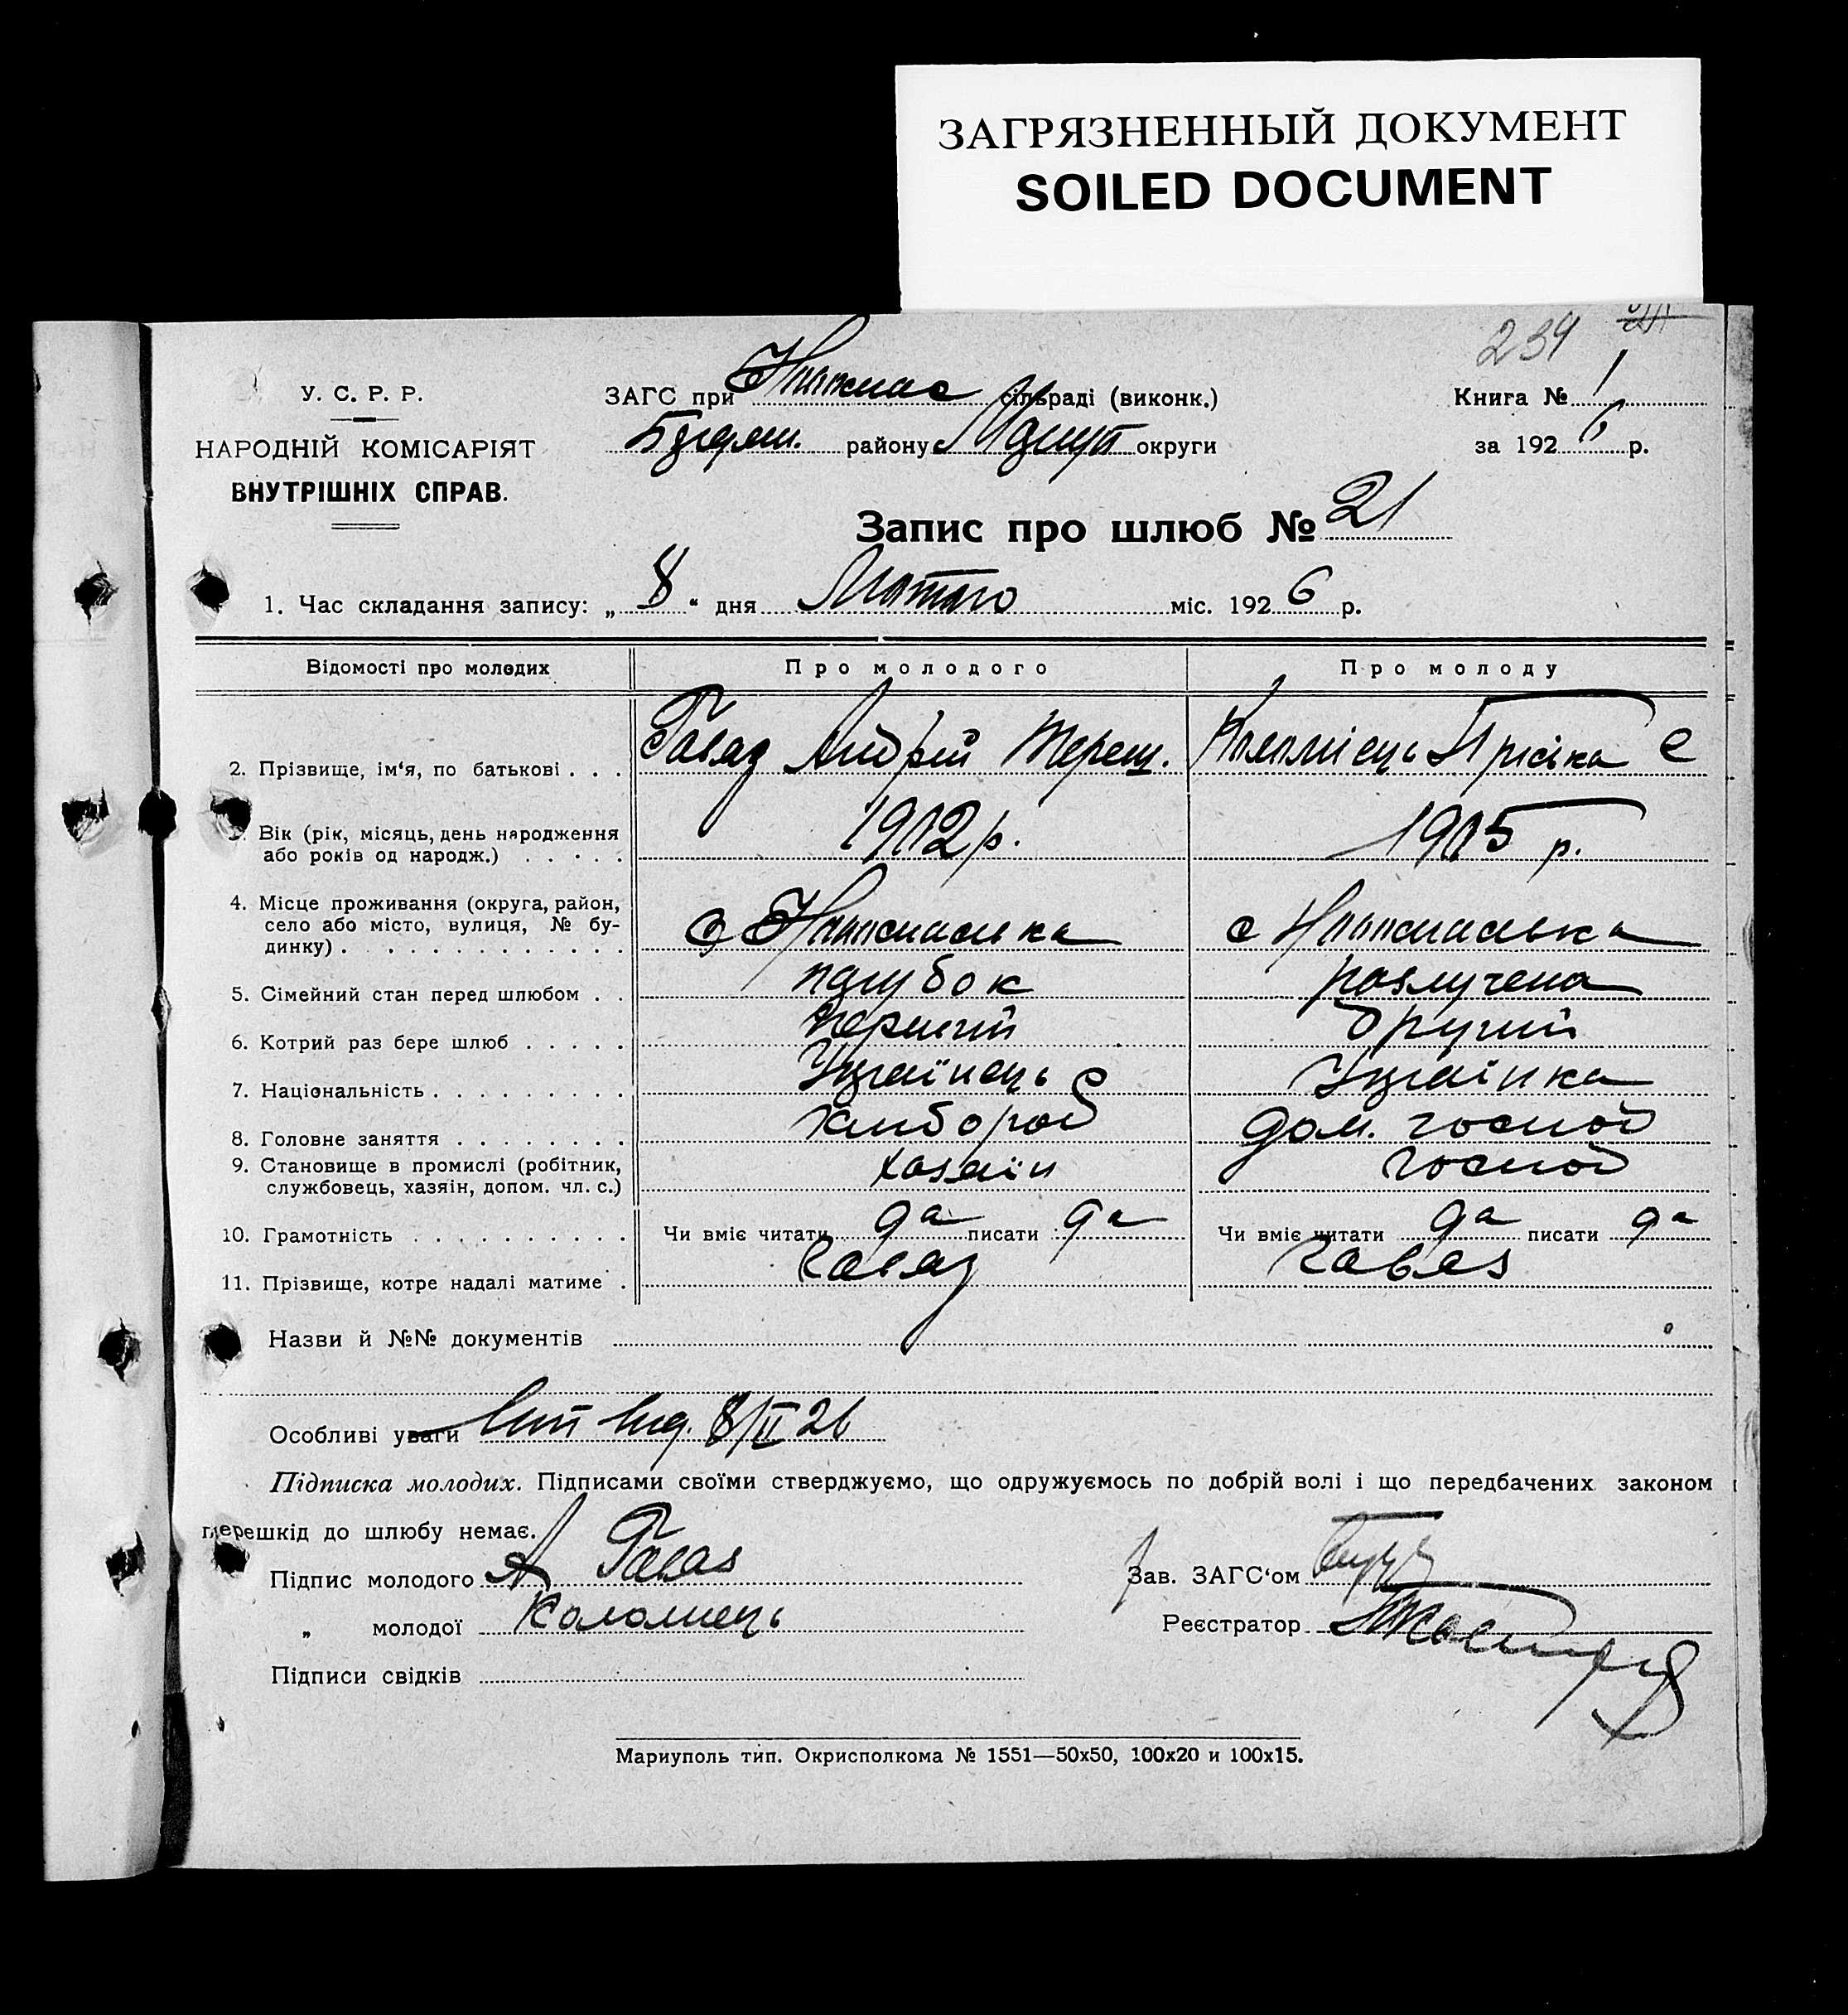 ЗАГРЯЗНЕННЫЙ ДОКУМЕНТ
SOILED DOCUMENT
239
У. С. Р. Р.
НАРОДНІЙ КОМІСАРІЯТ
ВНУТРІШНІХ СПРАВ.
ЗАГС при сільраді (виконк.)
району округи
Книга № 1
за 1926 р.
Запис про шлюб № 21
1. Час складання запису: „ 8 “ дня Лютого міс. 1926 р.
Відомості про молодих Про молодого Про молоду
2. Прізвище, ім‘я, по батькові . . . Гаваз Андрій Терещ. Коломієць Пріська Є
Вік (рік, місяць, день народження
або років од народж.) . . . . . 1902 р. 1905 р.
4. Місце проживання (округа, район,
село або місто, вулиця, № бу-
динку) . . . . . . . . . . . . с с
5. Сімейний стан перед шлюбом . . парубок розлучена
6. Котрий раз бере шлюб . . . . . перший другий
7. Національність . . . . . . . . . Українець Українка
8. Головне заняття . . . . . . . . хлібороб дом. господ
9. Становище в промислі (робітник,
службовець, хазяін, допом. чл. с.) хазяїн господ
10. Грамотність . . . . . . . . . . Чи вміє читати да писати да Чи вміє читати да писати да
11. Прізвище, котре надалі матиме . Гаваз Гаваз
Назви й №№ документів
Особливі уваги 8/II 26
Підписка молодих. Підписами своїми стверджуємо, що одружуємось по добрій волі і що передбачених законом
перешкід до шлюбу немає.
Підпис молодого А Гаваз Зав. ЗАГС‘ом
„ молодої Коломиець Реєстратор
Підписи свідків
Мариуполь тип. Окрисполкома № 1551—50х50, 100х20 и 100х15.